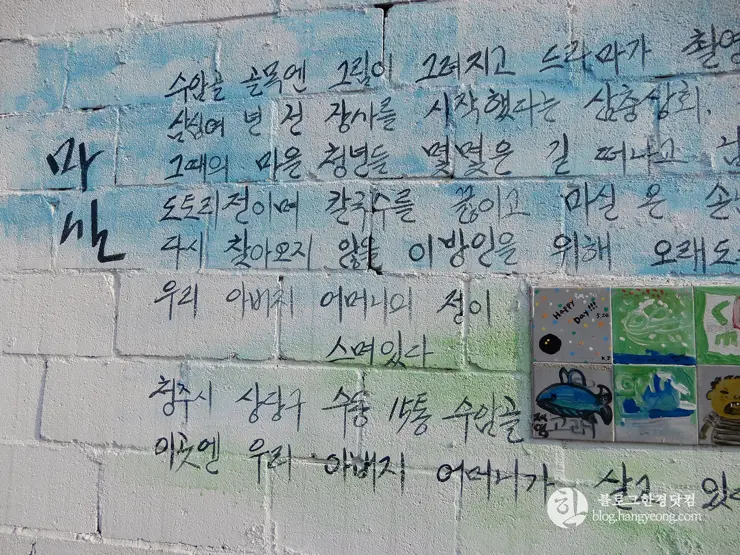 마
실
수암골 골목엔 그림이 그려지고 드라마가 촬영
삼십여 년 전 장사를 시작했다는 삼충상회.
그때의 마을 청년들 몇몇은 길 떠나고
도토리전이며 칼국수를 끓이고 마실 온 손
다시 찾아오지 않을 이방인을 위해 오래도
우리 아버지 어머니의 정이
스며있다
청주시 상당구 수동 15통 수암골
이곳엔 우리 아버지 어머니가 살고 있
HAPPY
DAY!!!
5.20
고래
블로그한경닷컴
blog.hangyeong.com